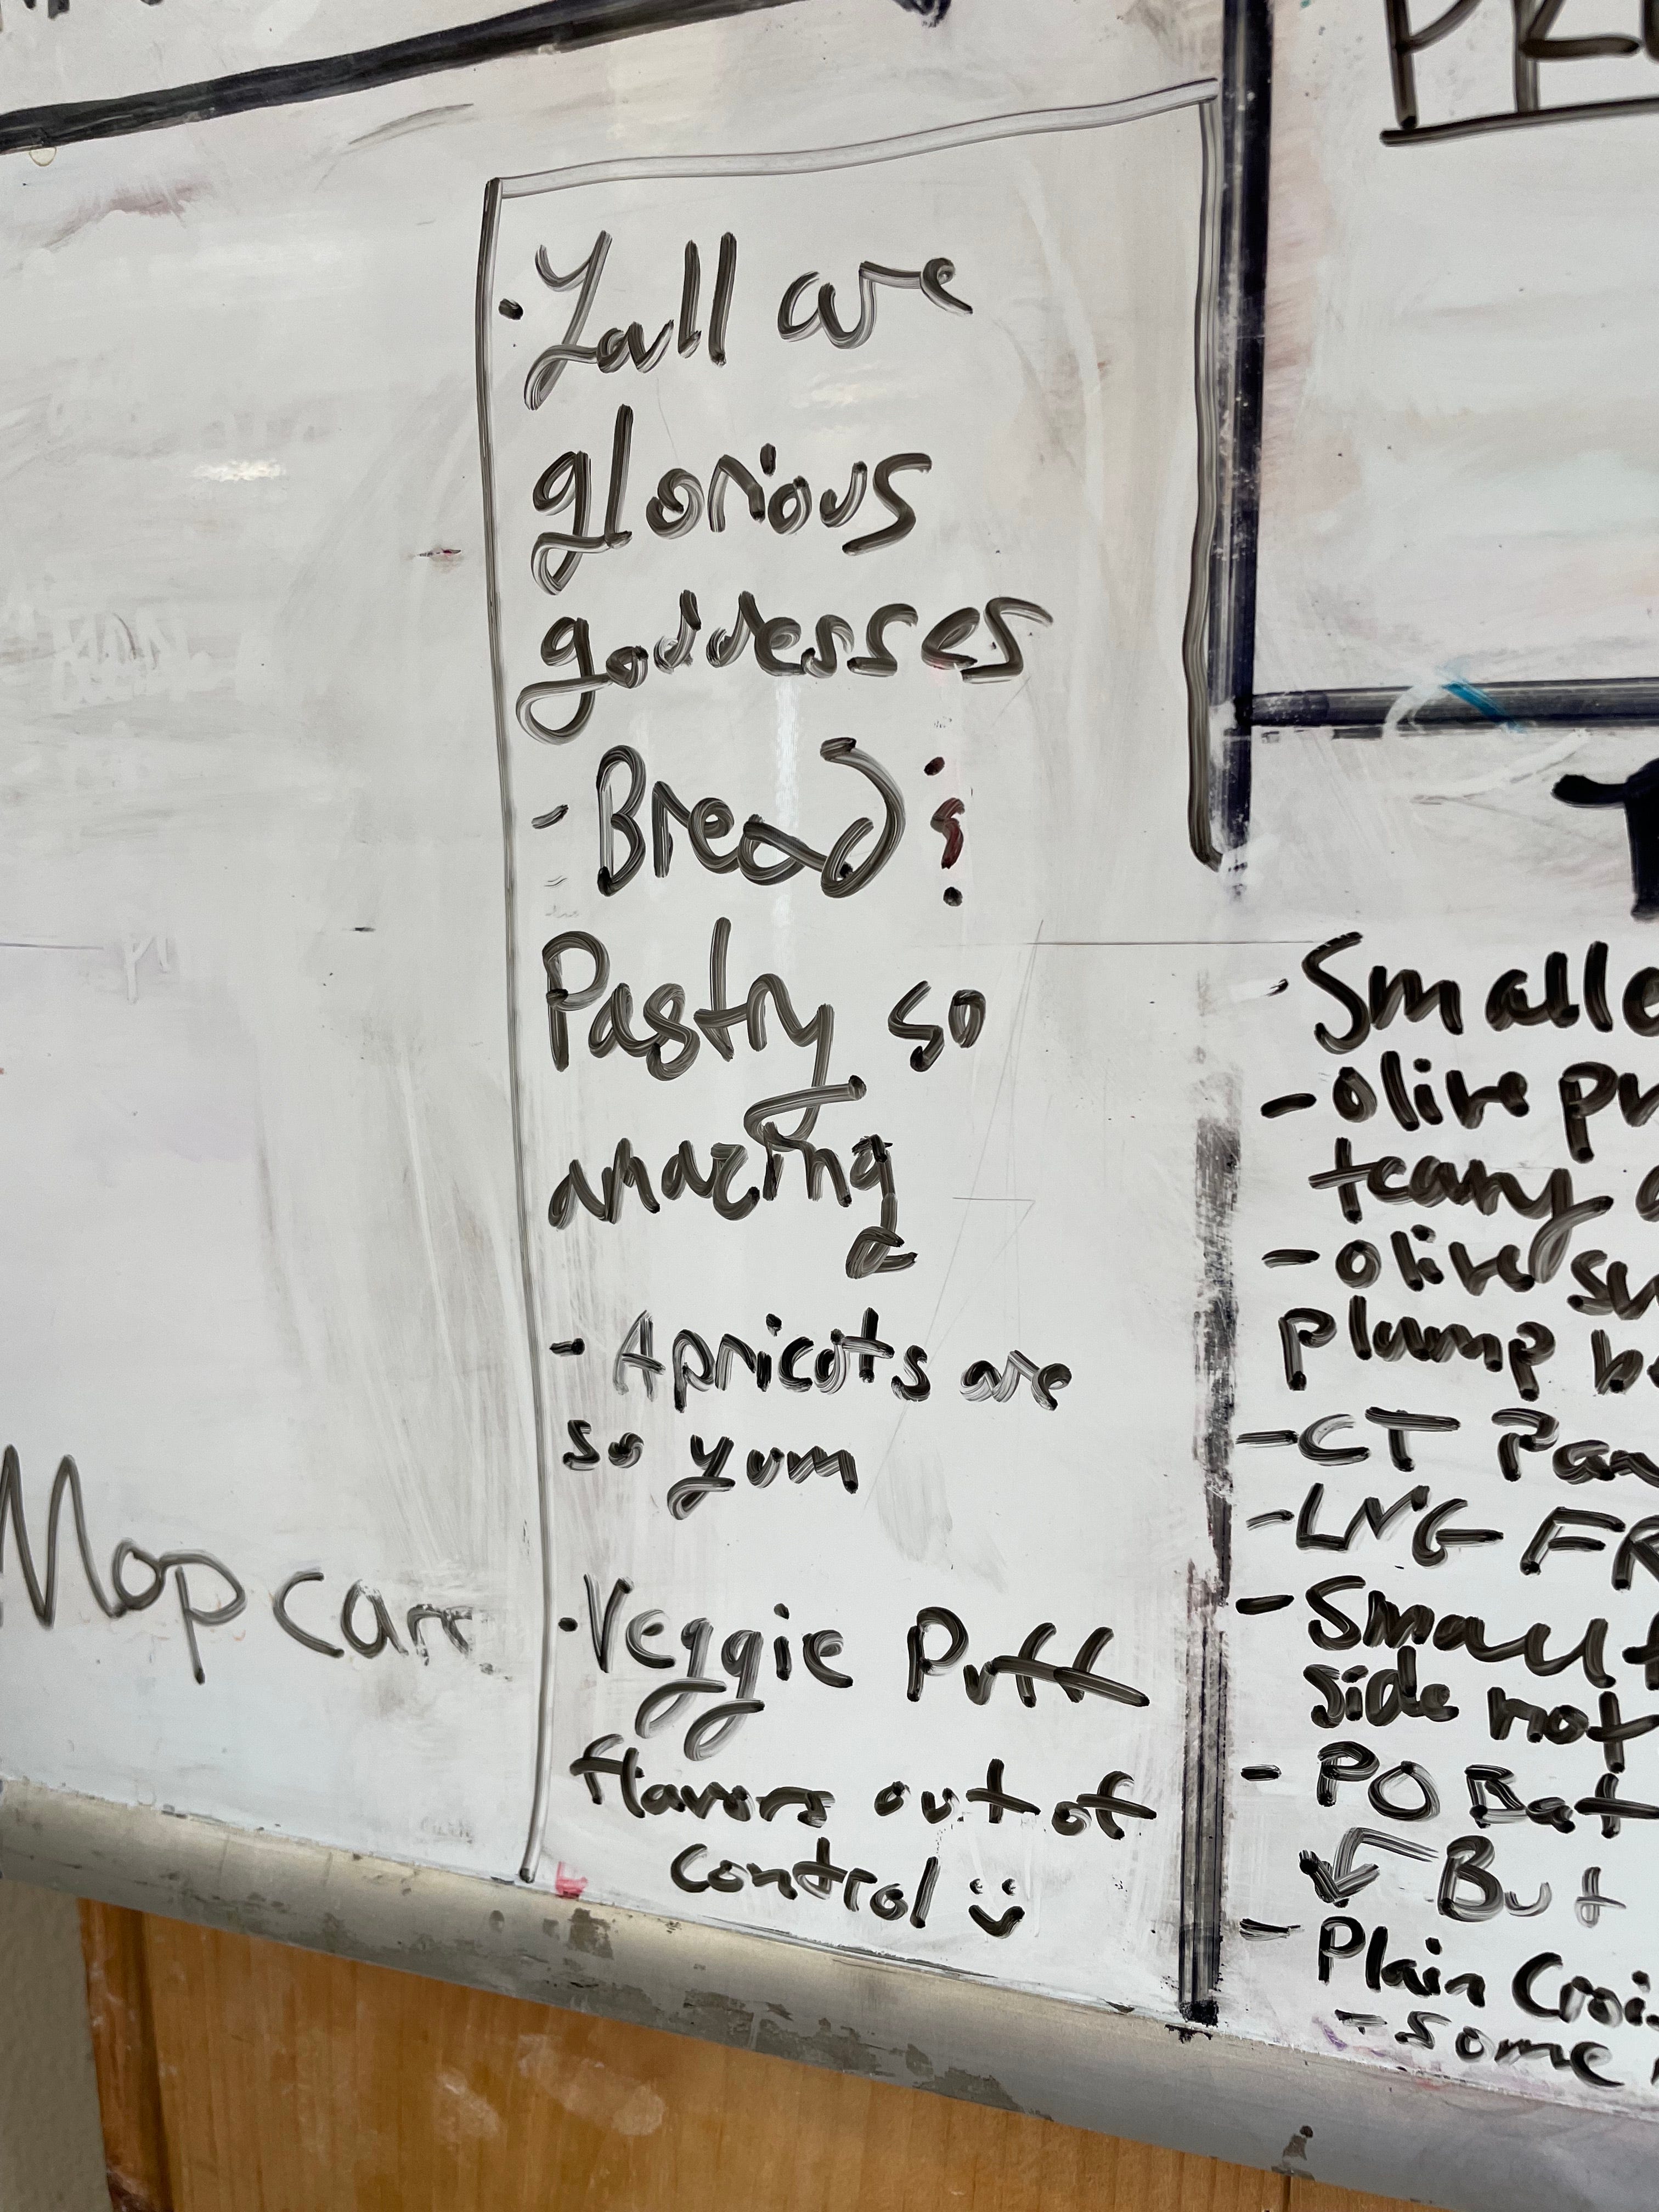 PRE
· Yall are
glorious
goddesses
- Bread &
Pastry so
amazing
- Apricots are
so yum
· Veggie Puff
flavors out of
control
Mop care
· Smalle
- olive pr
teany
- olive su
plump be
- CT Pan
- LNG FR
- Small
side not
- PO Bat
But
- Plain Croi
- some